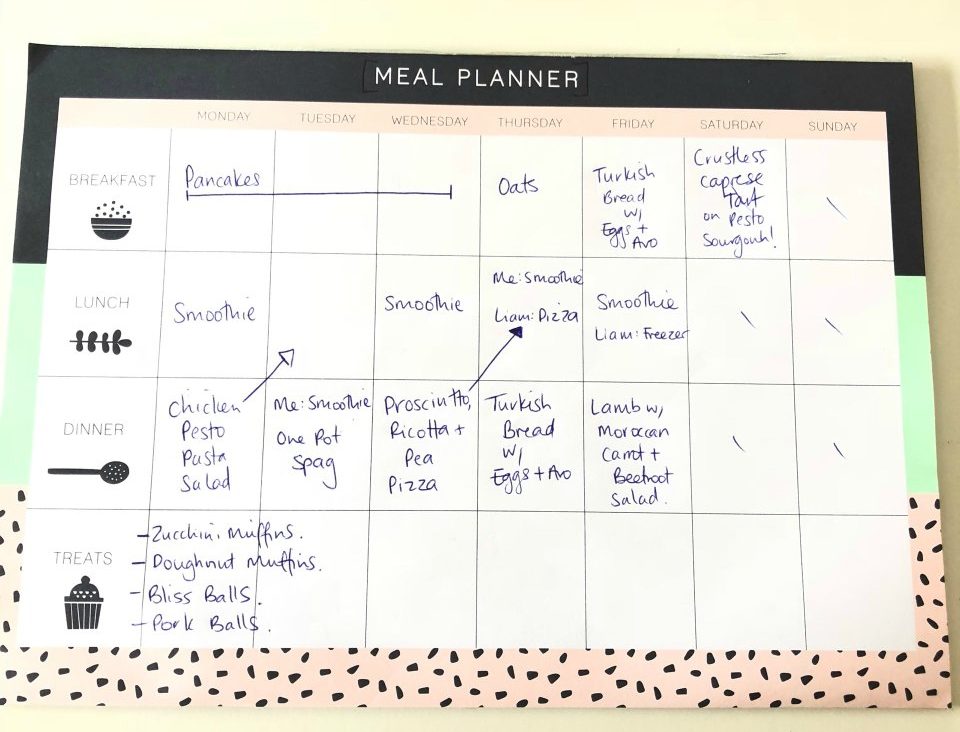 MEAL PLANNER
MONDAY TUESDAY WEDNESDAY THURSDAY FRIDAY SATURDAY SUNDAY
BREAKFAST
Pancakes
Oats
Turkish
Bread
w/
Eggs +
Avo
Crustless
caprese
Tart
on Pesto
Sourgouh!
LUNCH
Smoothie
Smoothie
Me: Smoothie
Liam: Pizza
Smoothie
Liam: Freezer
DINNER
Chicken
Pesto
Pasta
Salad
Me: Smoothie
One Pot
Spag
Prosciutto,
Ricotta +
Pea
Pizza
Turkish
Bread
w/
Eggs + Avo
Lamb w/
Moroccan
Carrot +
Beetroot
Salad.
TREATS
- Zucchini Muffins.
- Doughnut Muffins.
- Bliss Balls.
- Pork Balls.